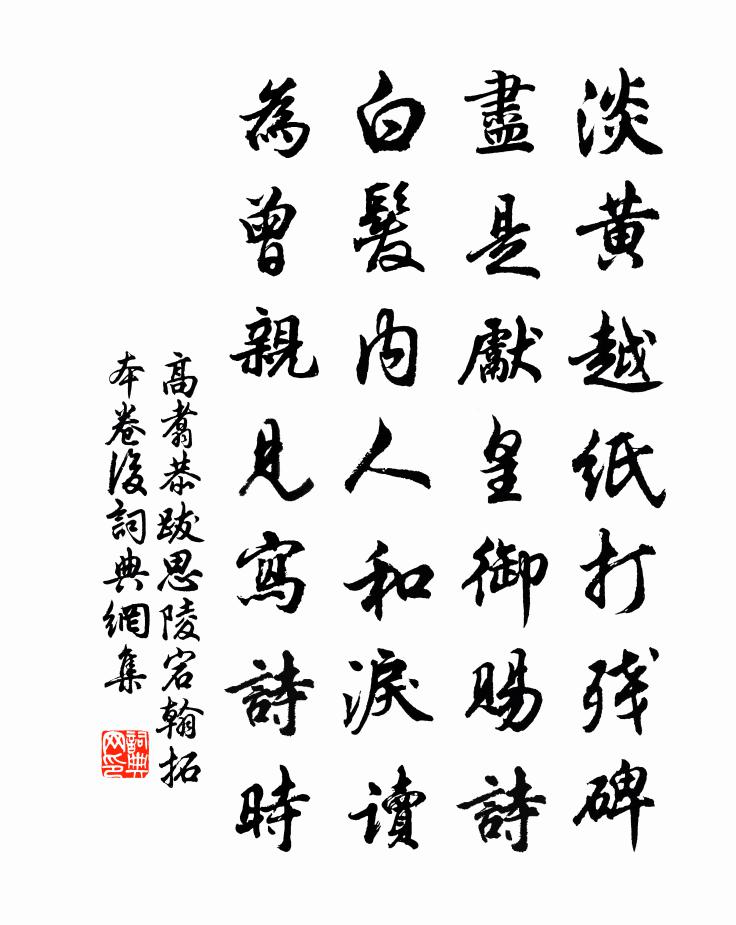 淡黃越紙打残碑
盡是獻皇御賜詩
白髮內人和淚讀
為曾親見寫詩時
高翥恭跋思陵宸翰拓
本卷後詞典網集
詞典网印